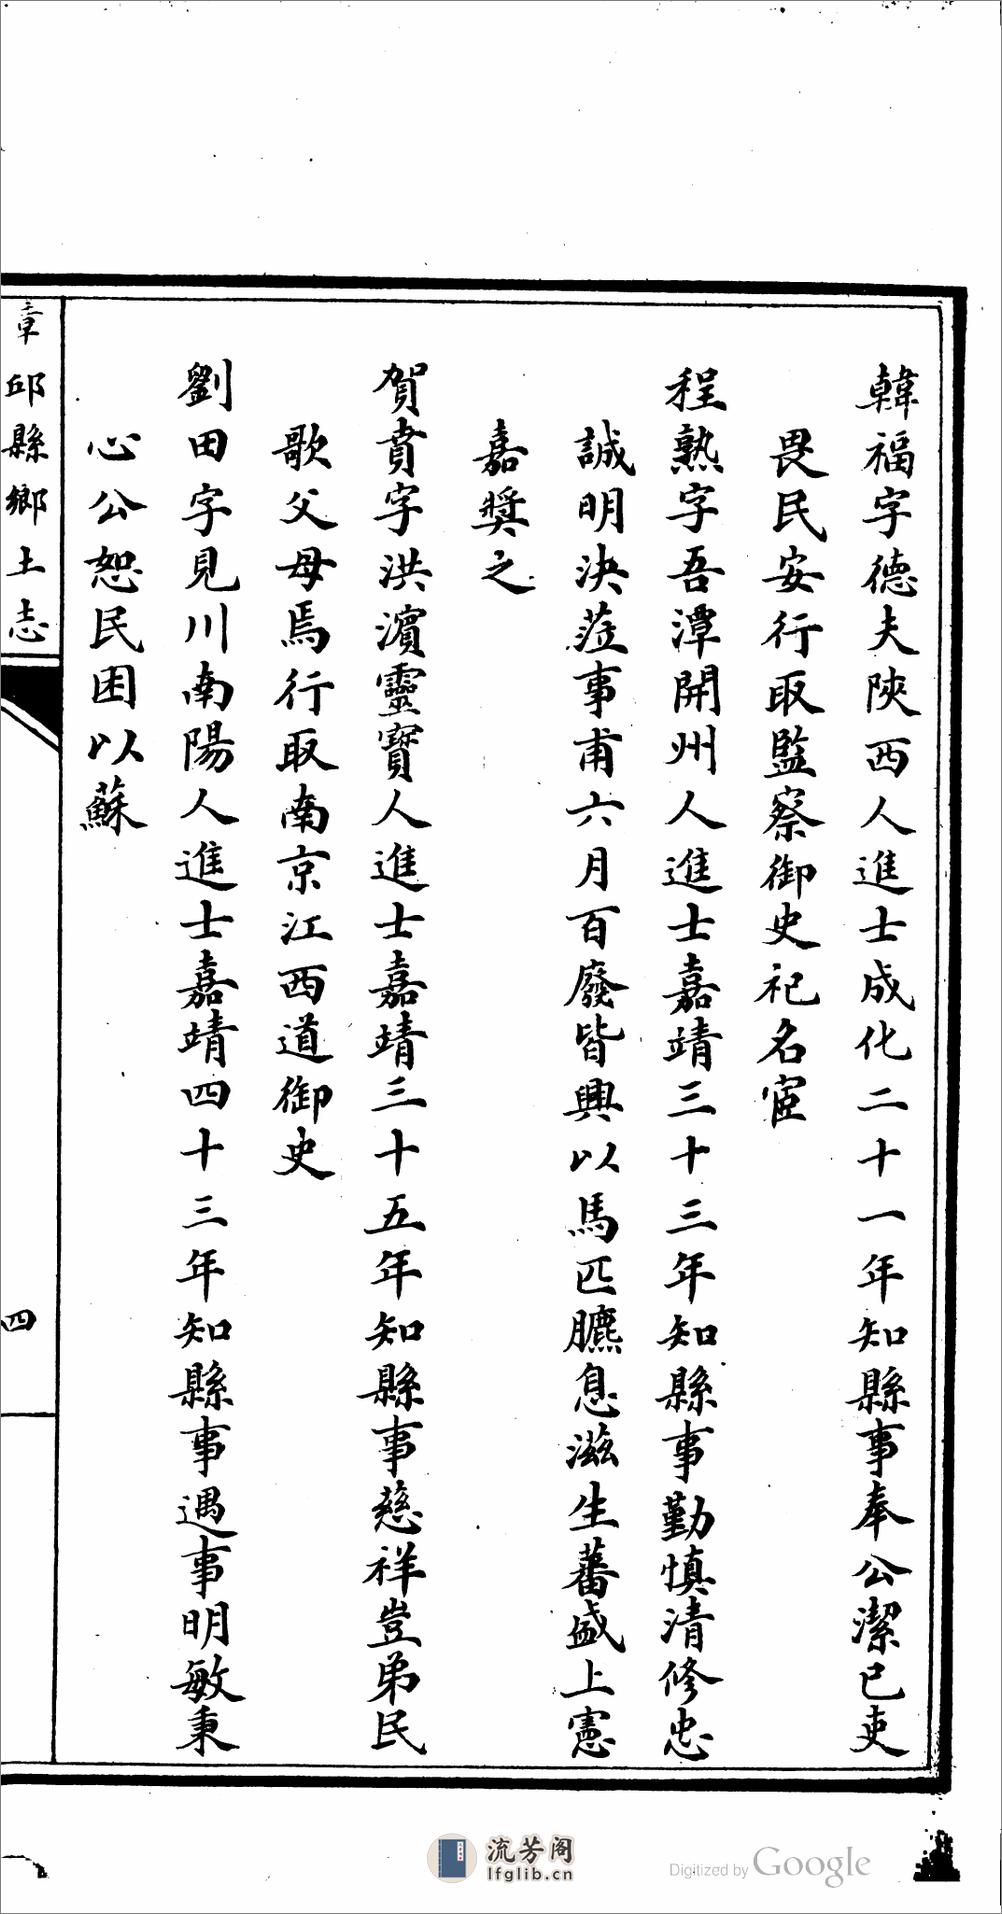 韓福字德夫陝西人進士成化二十一年知縣事奉公潔已吏
畏民安行取監察御史祀名宦
程熟字吾潭開州人進士嘉靖三十三年知縣事勤慎清修忠
誠明決蒞事甫六月百廢皆興以馬匹臕息滋生蕃盛上憲
嘉獎之
賀賁字洪濵靈寳人進士嘉靖三十五年知縣事慈祥豈弟民
歌父母焉行取南京江西道御史
劉田字見川南陽人進士嘉靖四十三年知縣事遇事明敏秉
心公恕民困以蘇
章邱縣鄉土志
四
流芳阁
lfglib.cn
Digitized by Google